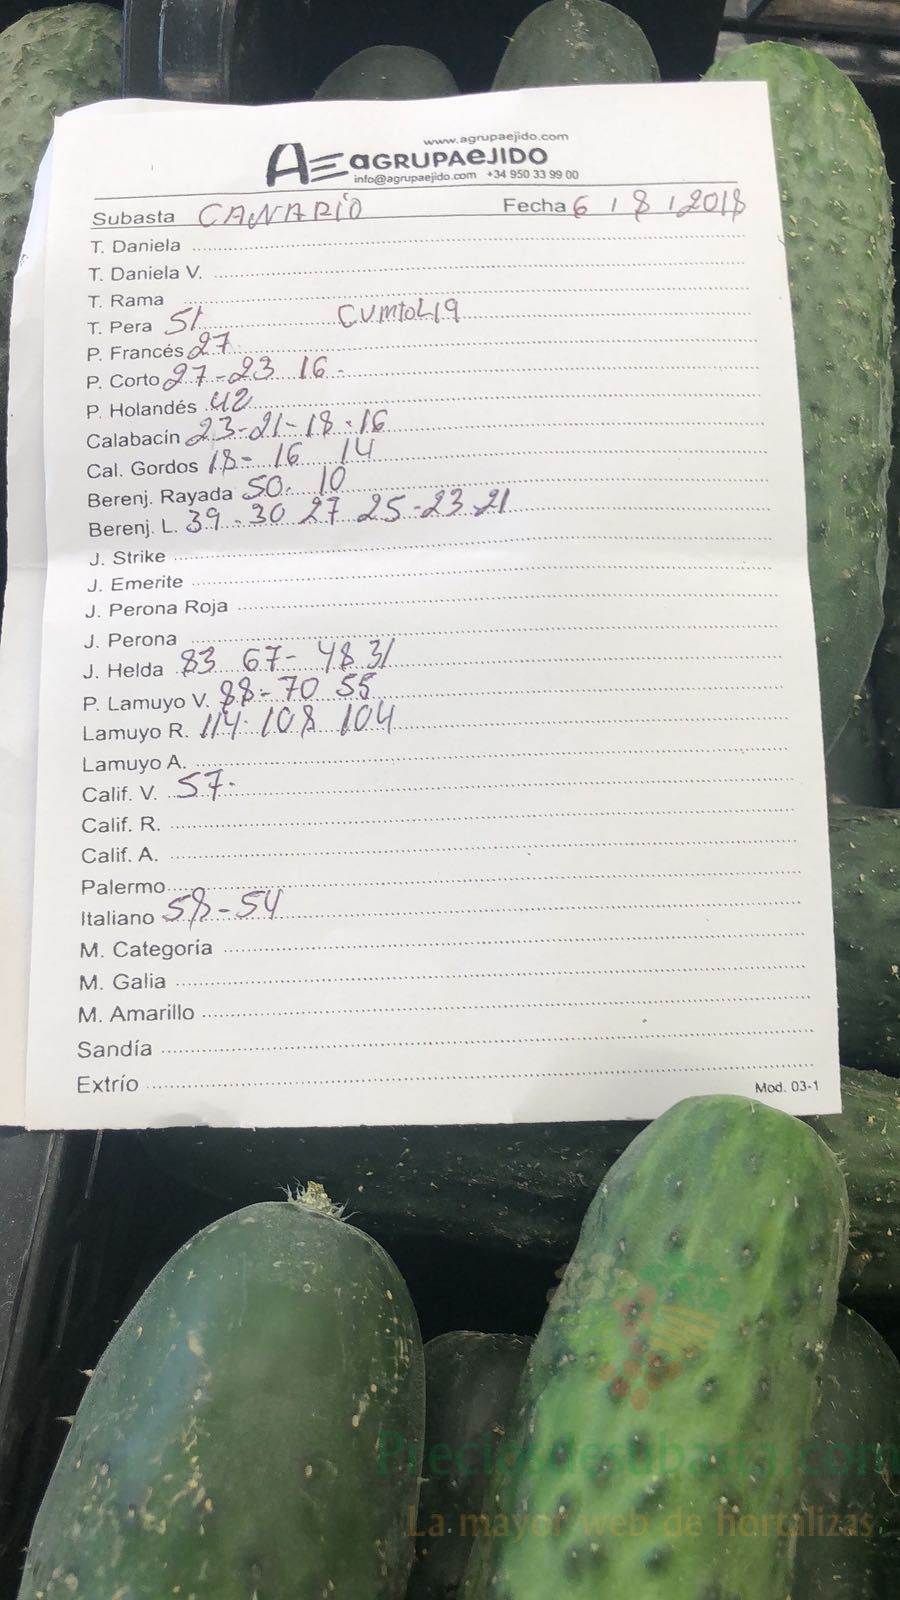 www.agrupaejido.com
AE aGRUPAeJIDO
info@agrupaejido.com +34 950 33 99 00
Subasta CANARIO Fecha 6 / 8 / 2018
T. Daniela
T. Daniela V.
T. Rama
T. Pera 51
P. Francés 27
P. Corto 27-23 16-
P. Holandés 42
Calabacín 23-21-18-16
Cal. Gordos 18- 16 14
Berenj. Rayada 50. 10
Berenj. L. 39-30 27 25-23 21
J. Strike
J. Emerite
J. Perona Roja
J. Perona
J. Helda 83 67- 48 31
P. Lamuyo V. 88-70 55
Lamuyo R. 114 108 104
Lamuyo A.
Calif. V. 57.
Calif. R.
Calif. A.
Palermo
Italiano 58-54
M. Categoría
M. Galia
M. Amarillo
Sandía
Extrío
Mod. 03-1
Preciosdesubasta.com
La mayor web de hortalizas